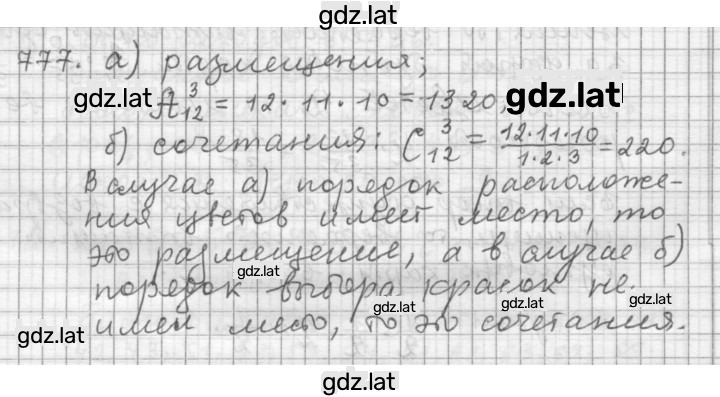 gdz.lat
777. а) размещения;
gdz.lat A₁₂³ = 12·11·10 = 1320, gdz.lat
б) сочетания: C₁₂³ = 12·11·10 / 1·2·3 = 220.
В случае а) порядок расположе-
ния цветов имеет место, то
это размещение, а в случае б)
gdz.lat
порядок выбора красок не
gdz.lat gdz.lat gdz.lat
gdz.lat имеи место, то это сочетания.
gdz.lat